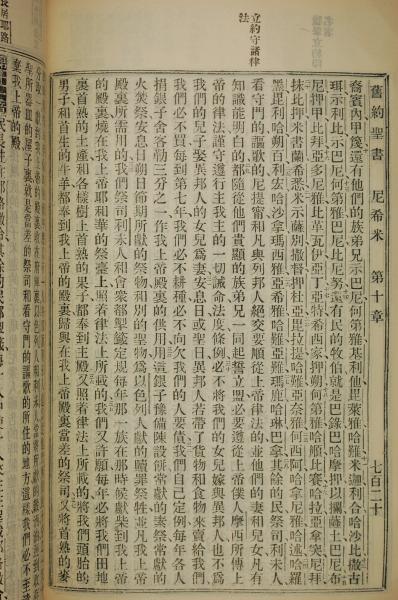 舊約聖書 尼希米 第十章 七百二十
立約守諸律
法
裔賓內甲篾還有他們的族弟兄示巴尼何第雅基利他毘萊雅哈難米迦利合哈沙比撒古
珥示利比示巴尼何第雅巴尼比尼努還有民的牧伯就是巴錄巴哈摩押以攔薩土巴尼布
尼押甲比拜亞多尼雅比革瓦伊亞丁亞特希西家押朔何第雅哈順比賽哈拉亞拿突尼拜
抹比押米書蘭希悉米示薩別撒督押杜亞毘拉提哈難亞奈雅何西阿哈拿尼雅哈述哈羅
黑毘利哈朔百利宏哈沙拿瑪西雅亞希雅哈難亞難瑪鹿哈琳巴拿其餘的民祭司利未人
看守門的謳歌的尼提甯和凡與列邦人絕交要順從上帝律法的並他們的妻和兒女凡有
知識能明白的都隨從他們貴顯的族弟兄一同起誓立盟必要遵從上帝僕人摩西所傳上
帝的律法謹守遵行主我主的一切誡命法度條例必不將我們的女兒嫁與異邦人也不爲
我們的兒子娶異邦人的女兒爲妻安息日或聖日異邦人若帶了貨物和食物來賣給我們
我們必不買每到第七年我們必不耕種必不向欠我們的人要債我們自己定例每年各人
捐銀子舍客勒三分之一作我上帝殿裏的供用用這銀子豫備陳設餅常獻的素祭常獻的
火焚祭安息日朔日節期所獻的祭物和別的聖物爲以色列人獻的贖罪祭牲並凡我上帝
殿裏所需用的我們祭司利未人和會衆都掣籤定規每年那一族在那時候獻柴到我上帝
的殿裏燒在我上帝耶和華的祭臺上照着律法上所載的我們又許願每年必將我們田地
裏首熟的土產和各樣樹上首熟的果子都奉到主殿又照着律法上所載的將我們頭胎的
男子和首生的牛羊都奉到我上帝的殿裏歸與在我上帝殿裏當差的祭司又將首熟的麥
棄我上帝的殿